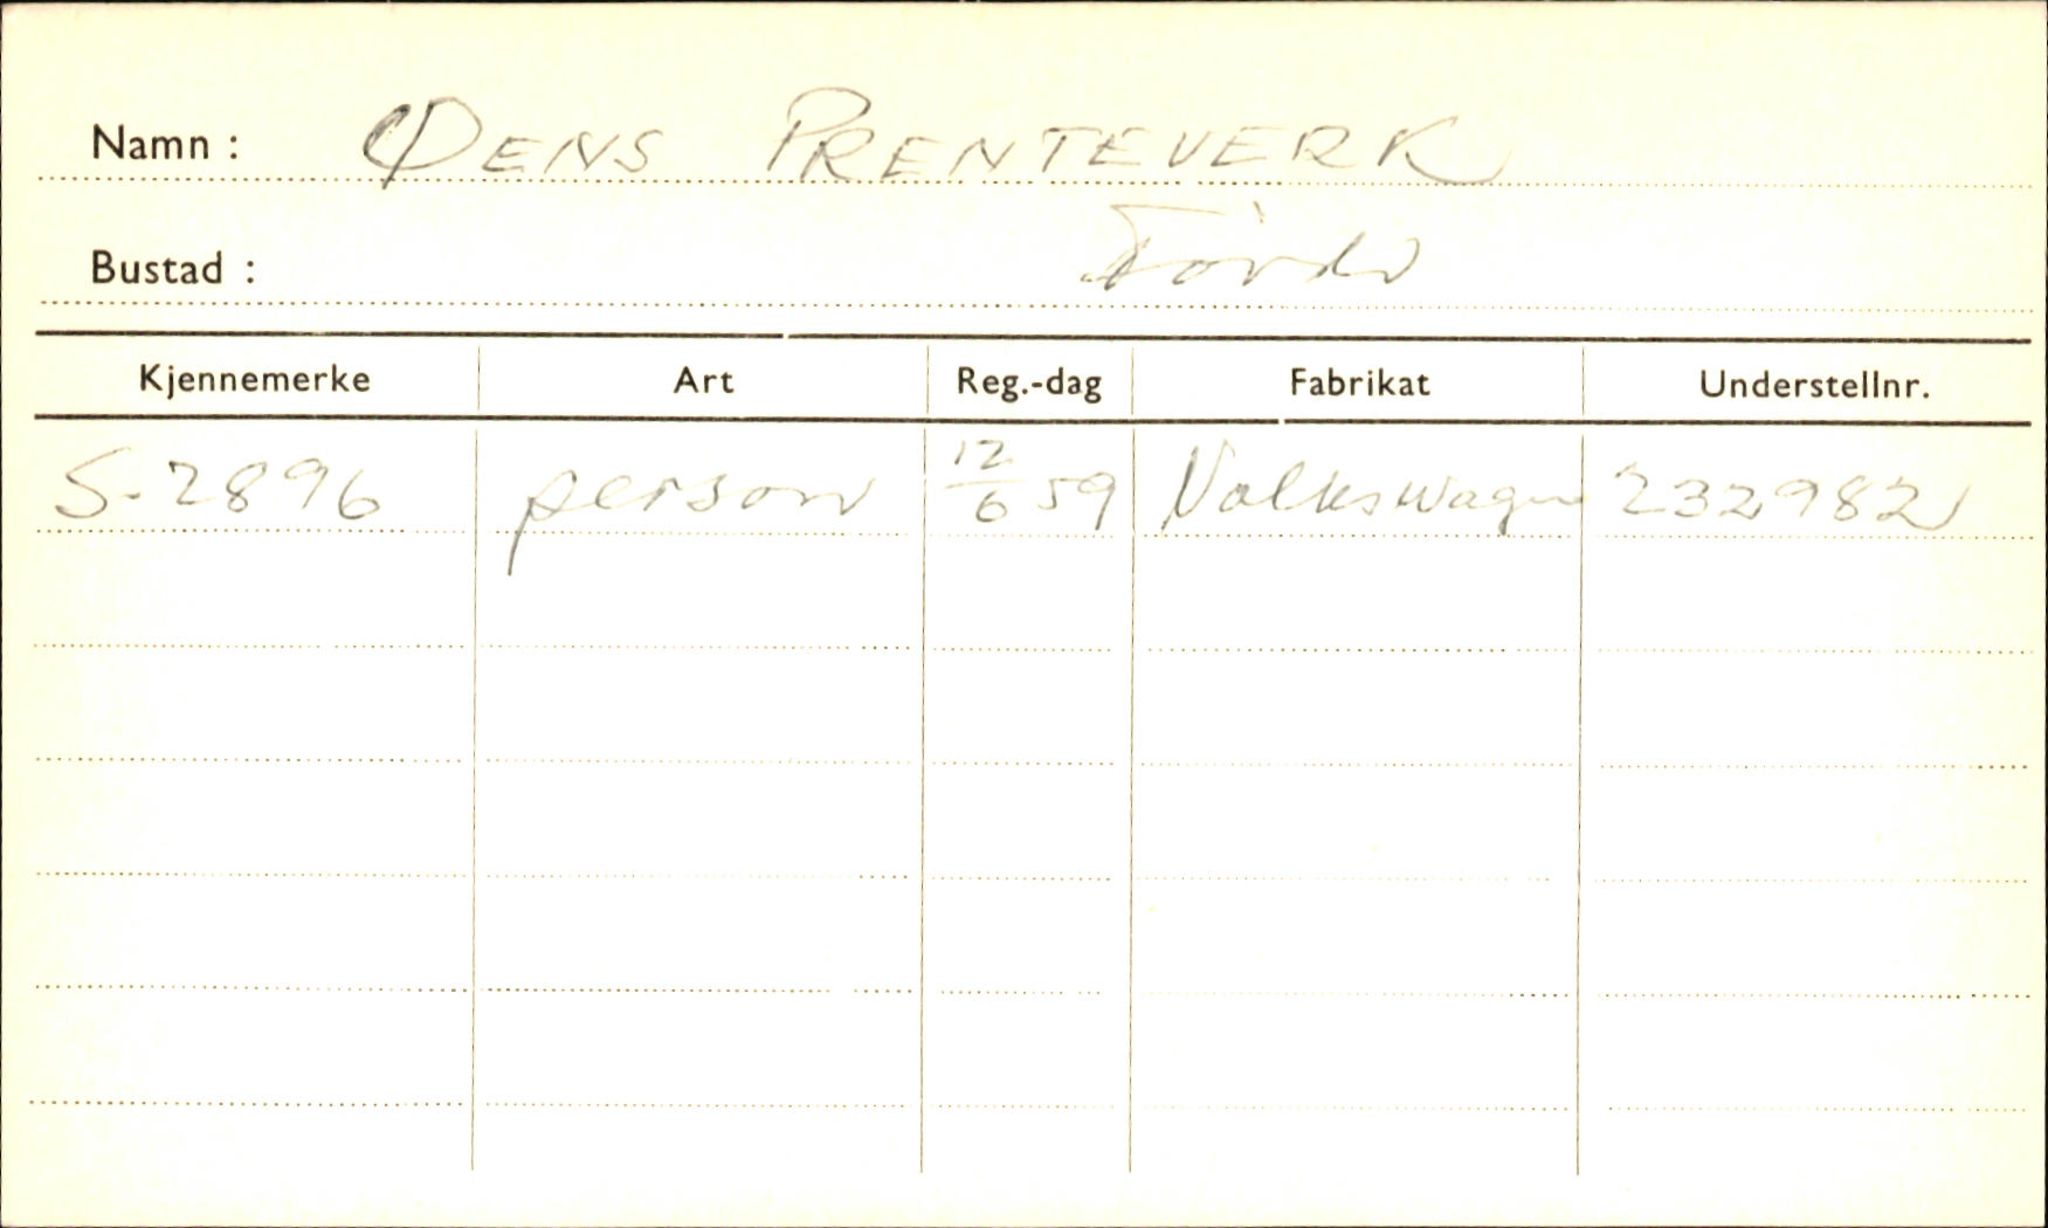 Namn : ØENS PRENTEVERK
Bustad : Förde
Kjennemerke Art Reg.-dag Fabrikat Understellnr.
S-2896 person 12/6 59 Volkswagen 232982